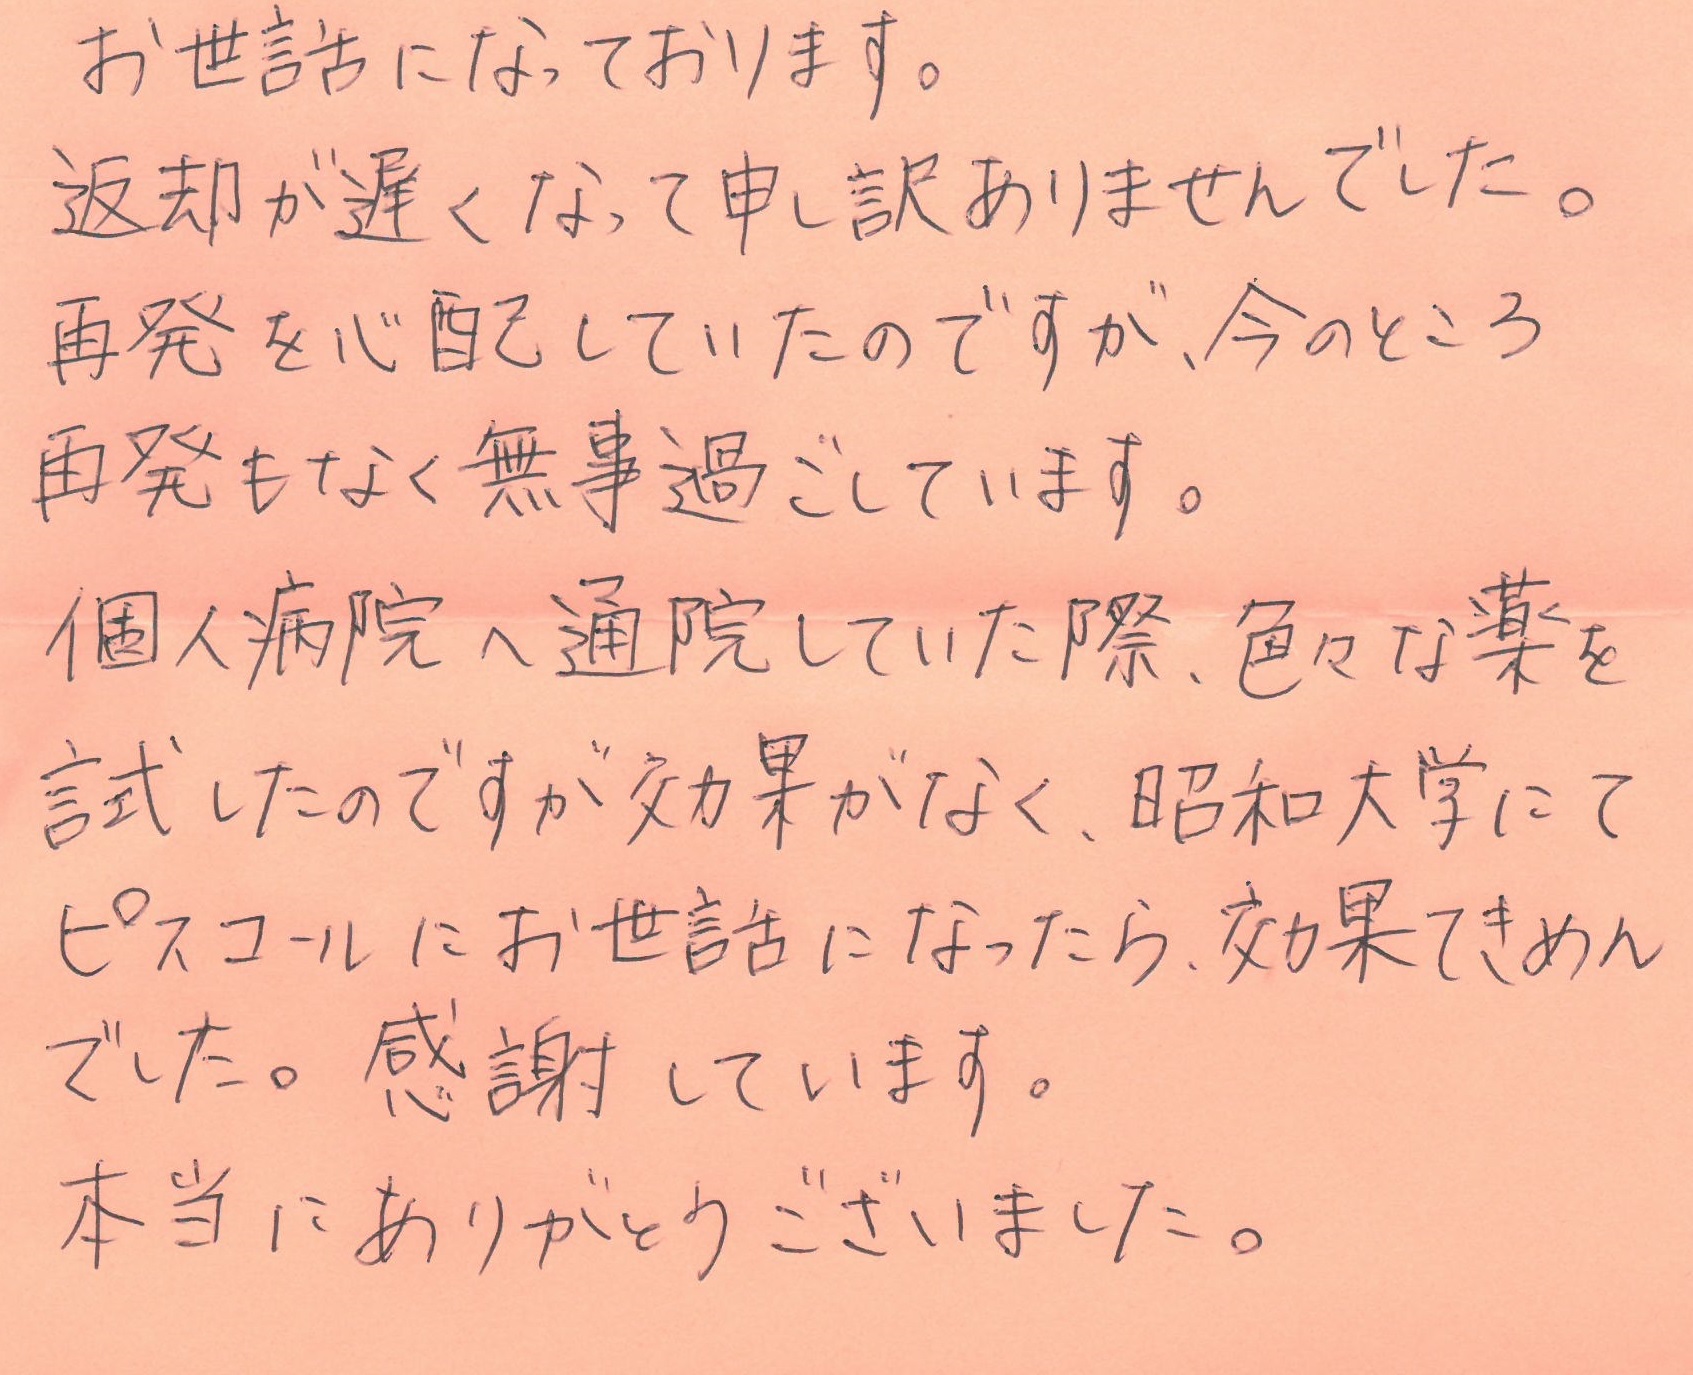 お世話になっております。
返却が遅くなって申し訳ありませんでした。
再発を心配していたのですが、今のところ
再発もなく無事過ごしています。
個人病院へ通院していた際、色々な薬を
試したのですが効果がなく、昭和大学にて
ピスコールにお世話になったら、効果てきめん
でした。感謝しています。
本当にありがとうございました。